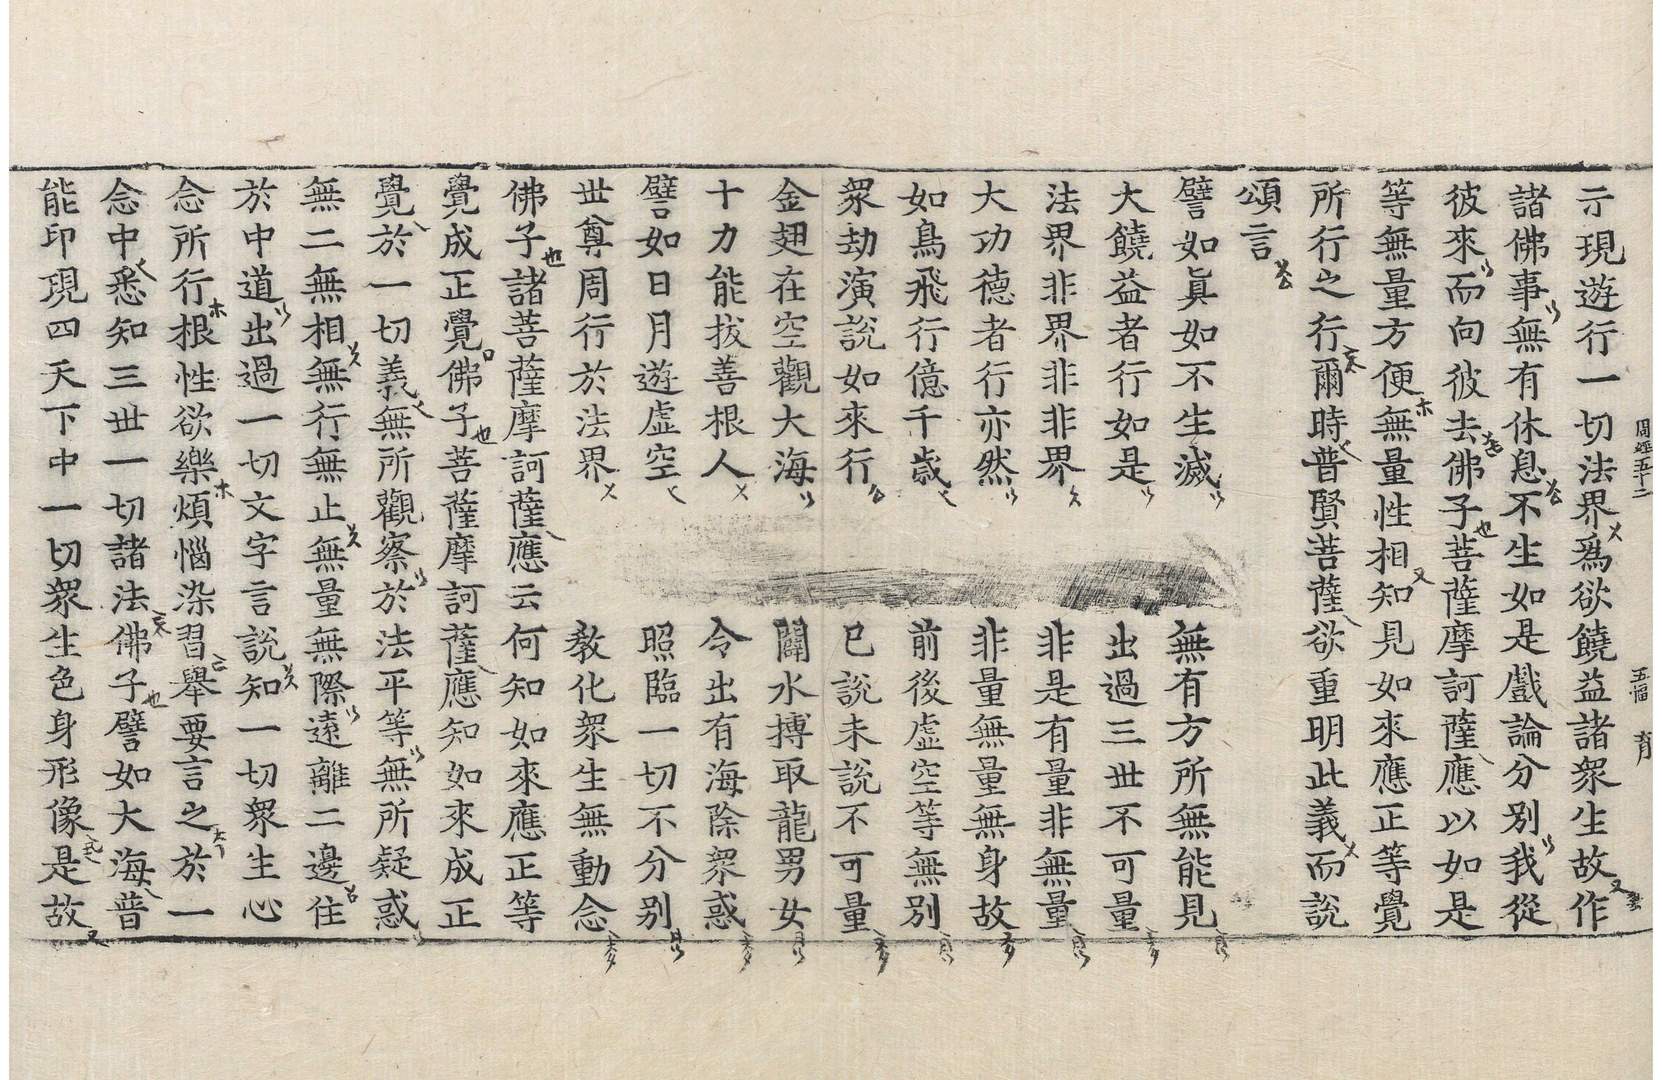 示現遊行一切法界爲欲饒益諸衆生故作
諸佛事無有休息不生如是戲論分別我從
彼來而向彼去佛子菩薩摩訶薩應以如是
等無量方便無量性相知見如來應正等覺
所行之行爾時普賢菩薩欲重明此義而說
頌言
譬如眞如不生滅 無有方所無能見
大饒益者行如是 出過三世不可量
法界非界非非界 非是有量非無量
大功德者行亦然 非量無量無身故
如鳥飛行億千歲 前後虛空等無別
衆劫演說如來行 已說未說不可量
金翅在空觀大海 闢水搏取龍男女
十力能拔善根人 令出有海除衆惑
譬如日月遊虛空 照臨一切不分別
世尊周行於法界 教化衆生無動念
佛子諸菩薩摩訶薩應云何知如來應正等
覺成正覺佛子菩薩摩訶薩應知如來成正
覺於一切義無所觀察於法平等無所疑惑
無二無相無行無止無量無際遠離二邊住
於中道出過一切文字言說知一切衆生心
念所行根性欲樂煩惱染習舉要言之於一
念中悉知三世一切諸法佛子譬如大海普
能印現四天下中一切衆生色身形像是故
周經五十二 五 育